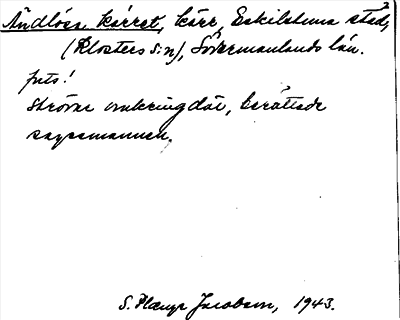 Ändlösa kärret, kärr, Eskilstuna stad,
(Klosters s:n), Södermanlands län.
puts!
omkring där, berättade
sagesmannen.
S. Plange Jacobson, 1943.